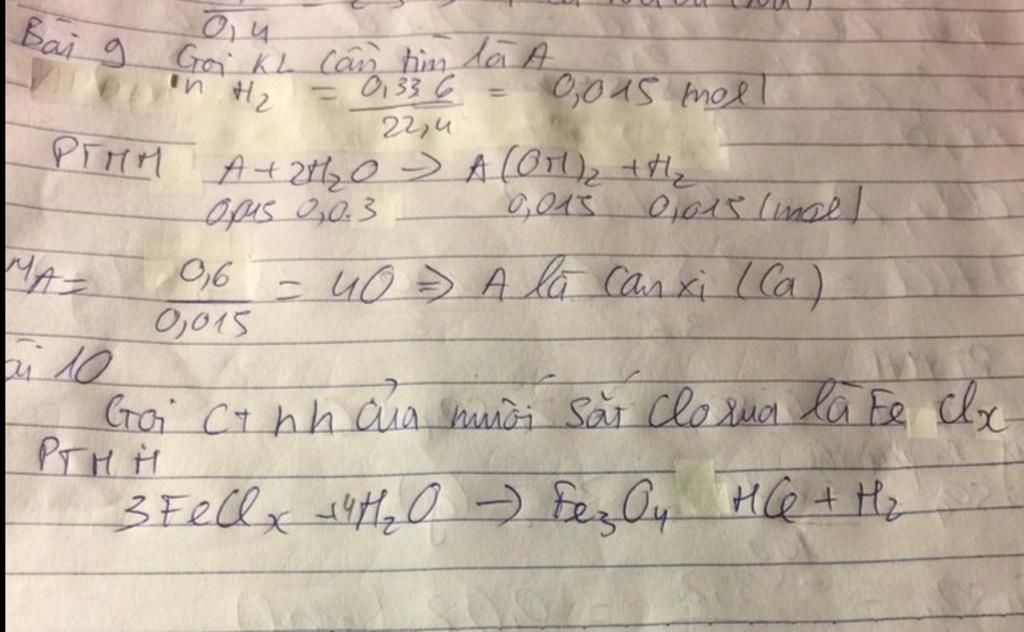 0,4
Bài 9 Gọi KL cần tìm là A
n H2 = 0,336 / 22,4 = 0,015 mol
PTHH A + 2H2O → A(OH)2 + H2
0,015 0,03 0,015 0,015 (mol)
MA = 0,6 / 0,015 = 40 ⇒ A là Canxi (Ca)
ài 10
Gọi CT hh của muối sắt Clorua là Fe Clx
PTHH
3FeClx + 4H2O → Fe3O4 HCl + H2